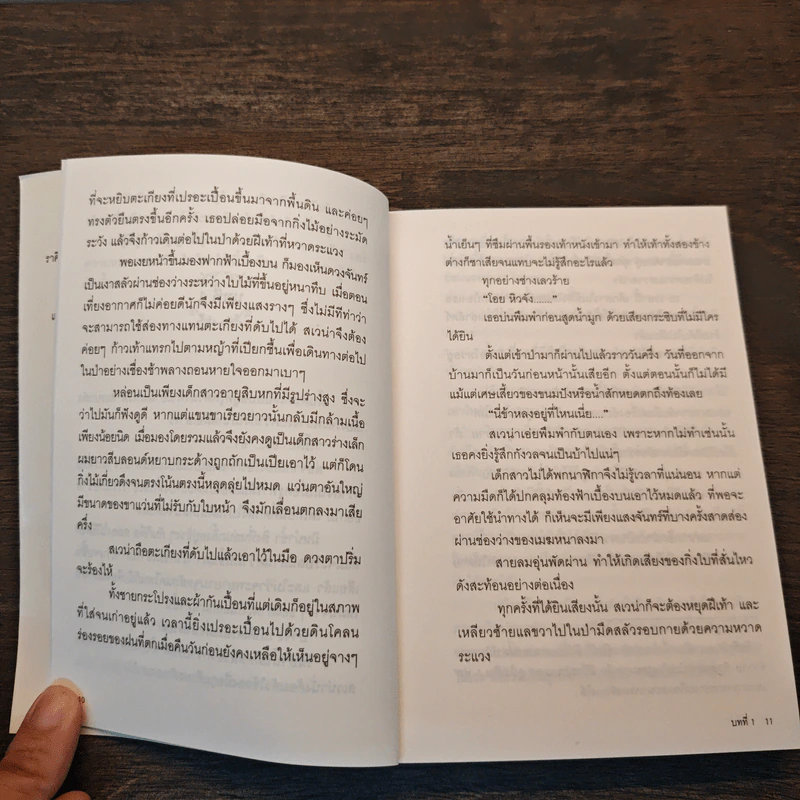 ที่จะหยิบตะเกียงที่เปรอะเปื้อนขึ้นมาจากพื้นดิน และค่อยๆ
ทรงตัวยืนตรงขึ้นอีกครั้ง เธอปล่อยมือจากกิ่งไม้อย่างระมัด
ระวัง แล้วจึงก้าวเดินต่อไปในป่าด้วยฝีเท้าที่หวาดระแวง
พอเงยหน้าขึ้นมองฟากฟ้าเบื้องบน ก็มองเห็นดวงจันทร์
เป็นเงาสลัวผ่านช่องว่างระหว่างใบไม้ที่ขึ้นอยู่หนาทึบ เมื่อตอน
เที่ยงอากาศก็ไม่ค่อยดีนักจึงมีเพียงแสงรางๆ ซึ่งไม่มีทีท่าว่า
จะสามารถใช้ส่องทางแทนตะเกียงที่ดับไปได้ สเวน่าจึงต้อง
ค่อยๆ ก้าวเท้าแทรกไปตามหญ้าที่เปียกชื้นเพื่อเดินทางต่อไป
ในป่าอย่างเชื่องช้าพลางถอนหายใจออกมาเบาๆ
หล่อนเป็นเพียงเด็กสาวอายุสิบหกที่มีรูปร่างสูง ซึ่งจะ
ว่าไปมันก็ฟังดูดี หากแต่แขนขาเรียวยาวนั้นกลับมีกล้ามเนื้อ
เพียงน้อยนิด เมื่อมองโดยรวมแล้วจึงยังคงดูเป็นเด็กสาวร่างเล็ก
ผมยาวสีบลอนด์หยาบกระด้างถูกถักเป็นเปียเอาไว้ แต่ก็โดน
กิ่งไม้เกี่ยวดึงจนตรงโน้นตรงนี้หลุดลุ่ยไปหมด แว่นตาอันใหญ่
มีขนาดของขาแว่นที่ไม่รับกับใบหน้า จึงมักเลื่อนตกลงมาเสีย
ครึ่ง
สเวน่าถือตะเกียงที่ดับไปแล้วเอาไว้ในมือ ดวงตาปริ่ม
จะร้องไห้
ทั้งชายกระโปรงและผ้ากันเปื้อนที่แต่เดิมก็อยู่ในสภาพ
ที่ใส่จนเก่าอยู่แล้ว เวลานี้ยิ่งเปรอะเปื้อนไปด้วยดินโคลน
ร่องรอยของฝนที่ตกเมื่อคืนวันก่อนยังคงเหลือให้เห็นอยู่จางๆ
น้ำเย็นๆ ที่ซึมผ่านพื้นรองเท้าหนังเข้ามา ทำให้เท้าทั้งสองข้าง
ต่างก็ชาเสียจนแทบจะไม่รู้สึกอะไรแล้ว
ทุกอย่างช่างเลวร้าย
“โอย หิวจัง.......”
เธอบ่นพึมพำก่อนสูดน้ำมูก ด้วยเสียงกระซิบที่ไม่มีใคร
ได้ยิน
ตั้งแต่เข้าป่ามาก็ผ่านไปแล้วราววันครึ่ง วันที่ออกจาก
บ้านมาก็เป็นวันก่อนหน้านั้นเสียอีก ตั้งแต่ตอนนั้นก็ไม่ได้มี
แม้แต่เศษเสี้ยวของขนมปังหรือน้ำสักหยดตกถึงท้องเลย
“นี่ข้าหลงอยู่ที่ไหนเนี่ย....”
สเวน่าเอ่ยพึมพำกับตนเอง เพราะหากไม่ทำเช่นนั้น
เธอคงยิ่งรู้สึกกังวลจนเป็นบ้าไปแน่ๆ
เด็กสาวไม่ได้พกนาฬิกาจึงไม่รู้เวลาที่แน่นอน หากแต่
ความมืดก็ได้ปกคลุมท้องฟ้าเบื้องบนเอาไว้หมดแล้ว ที่พอจะ
อาศัยใช้นำทางได้ ก็เห็นจะมีเพียงแสงจันทร์ที่บางครั้งสาดส่อง
ผ่านช่องว่างของเมฆหนาลงมา
สายลมอุ่นพัดผ่าน ทำให้เกิดเสียงของกิ่งใบที่สั่นไหว
ดังสะท้อนอย่างต่อเนื่อง
ทุกครั้งที่ได้ยินเสียงนั้น สเวน่าก็จะต้องหยุดฝีเท้า และ
เหลียวซ้ายแลขวาไปในป่ามืดสลัวรอบกายด้วยความหวาด
ระแวง
บทที่ 1 11